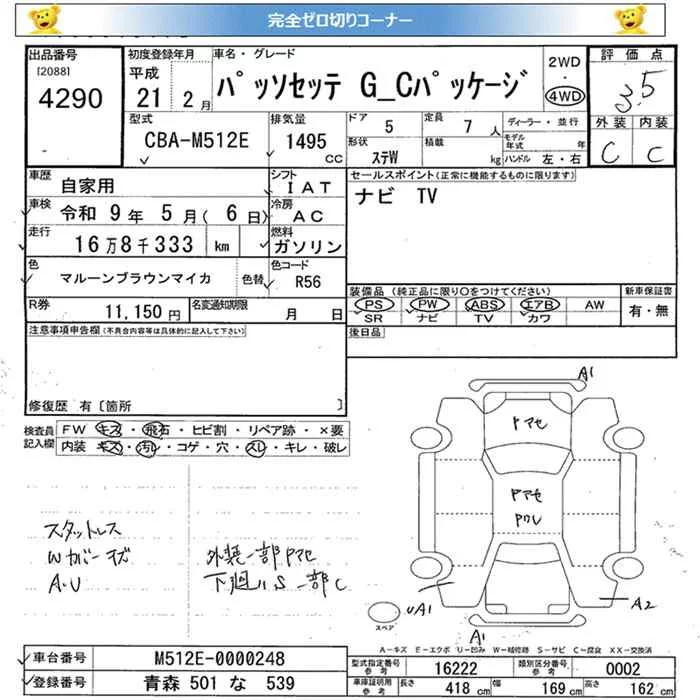 完全ゼロ切りコーナー
出品番号
[2088]
4290
初度登録年月
平成
21年 2月
車名・グレード
パッソセッテ G_Cパッケージ
2WD
・
4WD
評価点
3.5
外装 内装
C C
型式
CBA-M512E
排気量
1495
CC
ドア
5
定員
7人
形状
ステW
積載
kg
ディーラー・並行
モデル年式 年
ハンドル 左・右
車歴
自家用
シフト
IAT
セールスポイント(正常に機能するものに限ります)
ナビ TV
車検
令和 9年 5月( 6日)
冷房
AC
走行
16万8千333 km
燃料
ガソリン
色
マルーンブラウンマイカ
色替
色コード
R56
装備品(純正品に限り○をつけてください)
PS PW ABS エアB AW
SR ナビ TV カワ
新車保証書
有・無
R券
11,150円
名変通知期限
月 日
後日品
注意事項申告欄(不具合内容等は具体的に記入して下さい)
修復歴 有〔箇所 〕
検査員記入欄
FW キズ・飛石・ヒビ割・リペア跡・×要
内装 キズ・汚レ・コゲ・穴・スレ・キレ・破レ
スタットレス
A.U
外装一部Pアセ
下廻りS一部C
A1
Pアセ
Pアセ
PクU
UA1
A2
A1
スペア
A-キズ E-エクボ U-凹み W-補修跡 S-サビ C-腐食 XX-交換済
車台番号
M512E-0000248
型式指定番号
参考
16222
類別区分番号
参考
0002
登録番号
青森 501 な 539
車庫証明用
参考
長さ
418 cm
幅
169 cm
高さ
162 cm